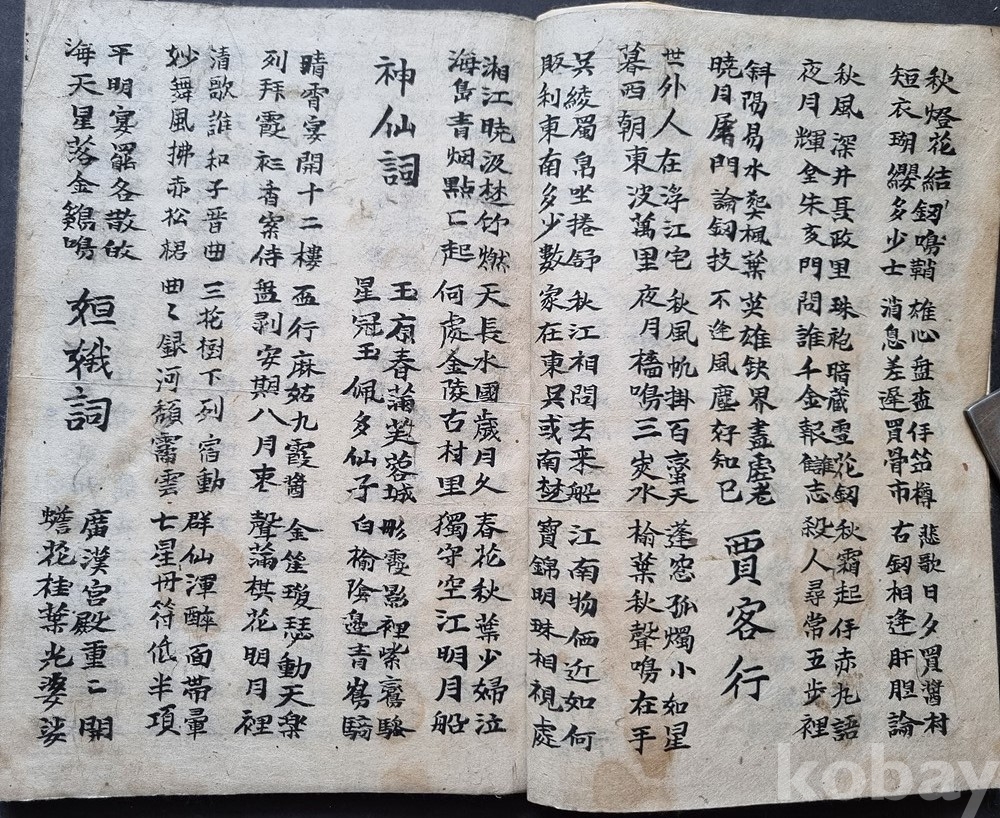 秋燈花結釼鳴鞘
短衣瑚纓多少士
雄心盘盃仔笠樽
消息差遲買骨市
悲歌日夕買醬村
古釼相逢肝胆論
秋風深井聂政里
夜月輝全朱亥門
珠袍暗蔵雪花釼
問誰千金報讎志
秋霜起仔赤丸語
殺人尋常五步裡
斜陽易水楓葉
暁月屠門論釼技
英雄缺界盡虛老
不逢風塵好知己
賈客行
世外人在浮江宅
暮西朝東波萬里
秋風帆掛百蛮天
夜月櫓鳴三峽水
蓬窓孤燭小如星
榆葉秋聲鳴在手
吳綾蜀帛坐捲舒
販利東南多少數
秋江相問去来船
家在東吳或南楚
江南物価近如何
寶錦明珠相視處
湘江暁汲楚竹燃
海島青烟點〻起
天長水國歲月久
何處金陵古村里
春花秋葉少婦泣
獨守空江明月船
神仙詞
玉京春蒲芙蓉城
星冠玉佩多仙子
彤霞影裡紫鸞驂
白榆陰邊青騎
晴霄宴開十二樓
列拜霞衫香案侍
盃行麻姑九霞醬
盤剥安期八月枣
金筐瓊瑟動天樂
聲蒲棋花明月裡
清歌誰和子晉曲
妙舞風拂赤松裙
三花樹下列宿動
曲〻銀河霱雲
群仙渾醉面帶暈
七星丹符低半項
平明宴罷各散故
海天星落金鷄鳴
姮娥詞
廣漢宮殿重〻開
蟾花桂葉光婆娑
kobay